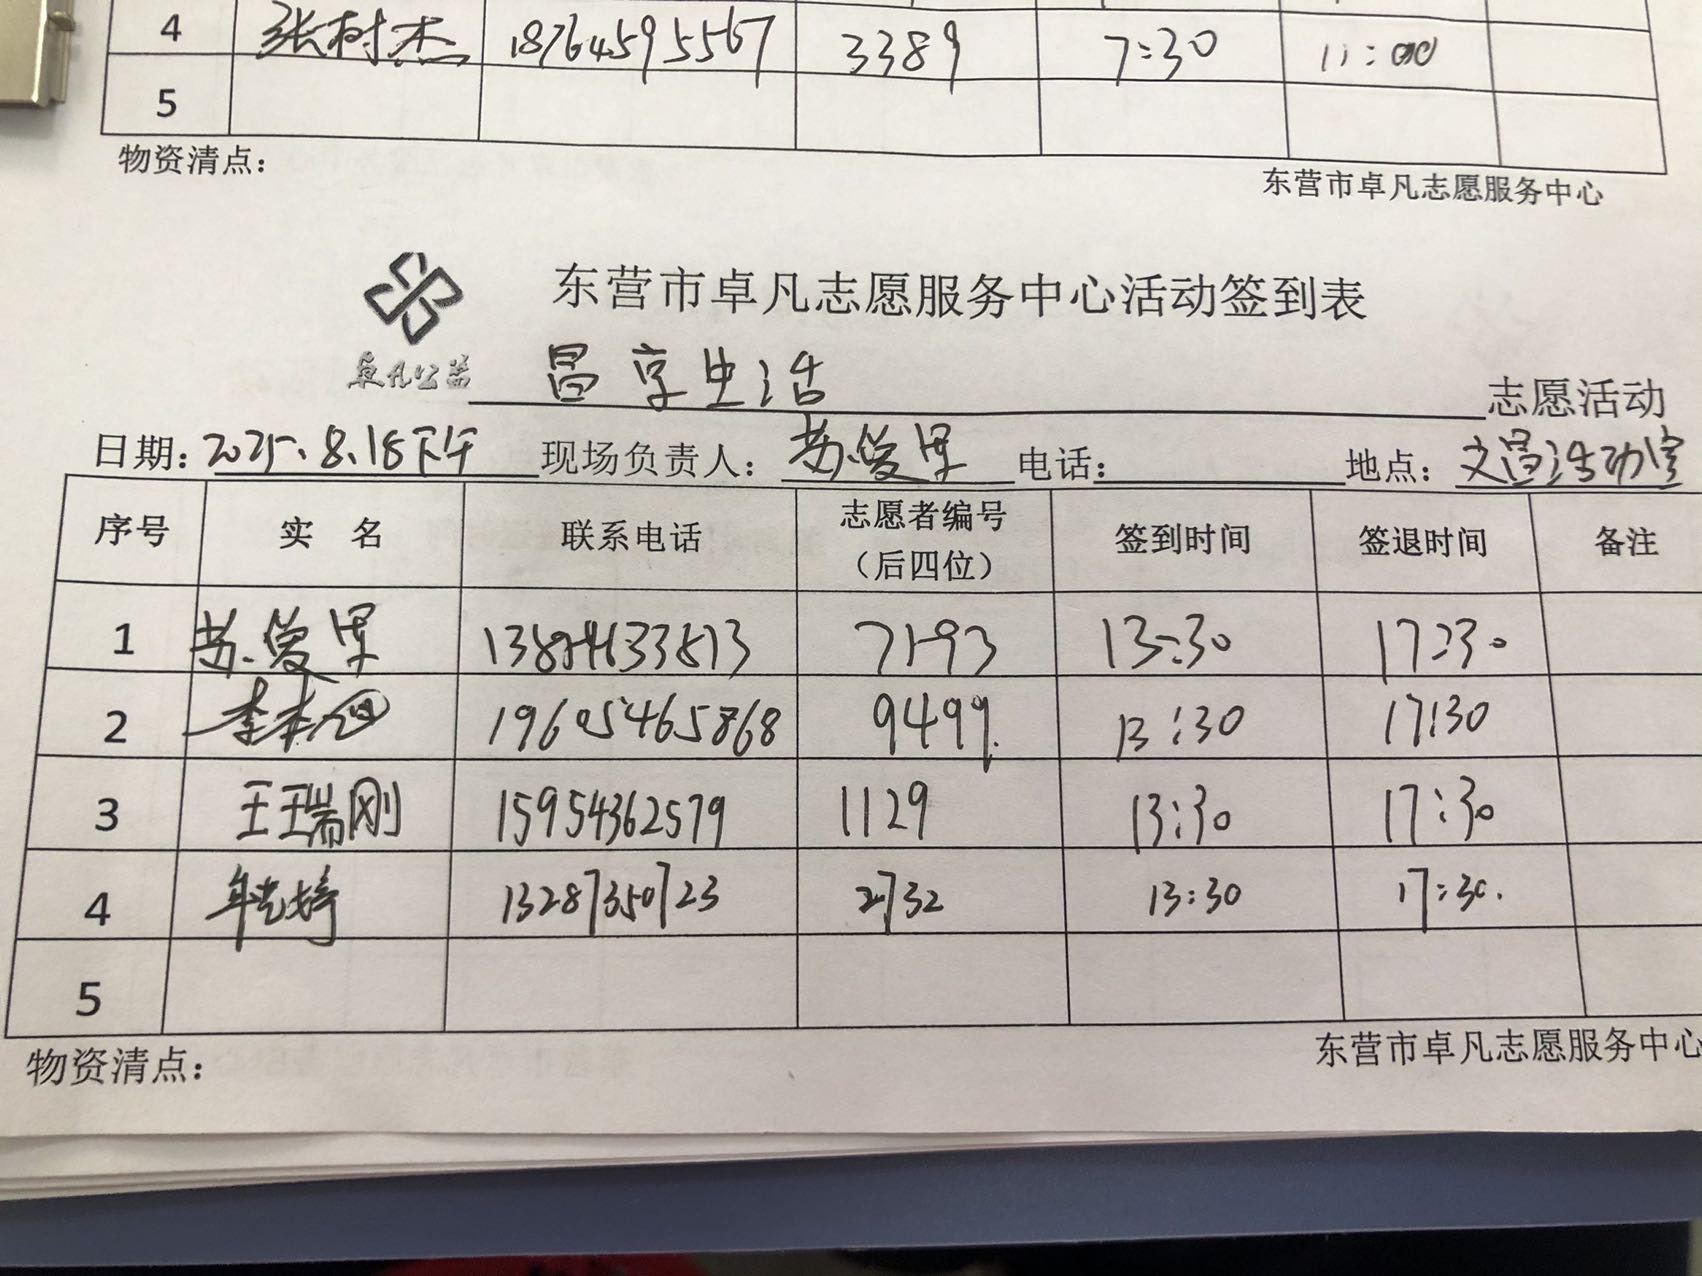 4 张树杰 18764595567 3389 7:30 11:00
5
物资清点：
东营市卓凡志愿服务中心
东营市卓凡志愿服务中心活动签到表
卓凡公益
昌享生活 志愿活动
日期：2025.8.18下午 现场负责人：苏俊军 电话： 地点：文昌活动室
序号 实 名 联系电话 志愿者编号（后四位） 签到时间 签退时间 备注
1 苏俊军 7193 13:30 17:30
2 李 19605465868 9499 13:30 17:30
3 王瑞刚 15954362579 1129 13:30 17:30
4 13287350723 2732 13:30 17:30
5
物资清点：
东营市卓凡志愿服务中心